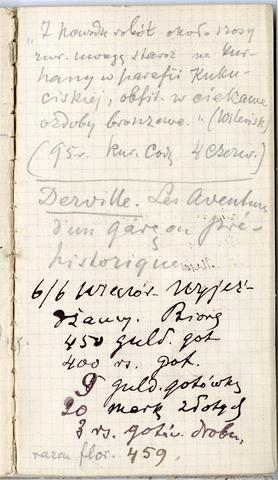 „Z powodu robót około szosy
zwr. uwagę staroż. na kur-
hany w parafii Kuku-
ciskiej, obfit. w ciekawe
ozdoby bronzowe." (Wileńsk)
(95 r. Kur. Codz. 4 czerw.)
Derville. Les Aventure
d'un garçon pré-
historique
6/6 wieczór. Wyjeż-
dżamy. Biorę
450 guld. got
400 rs. got.
9 guld. gotówką
20 marek złotych
3 rs. gotów. drobn.
razem flor. 459.